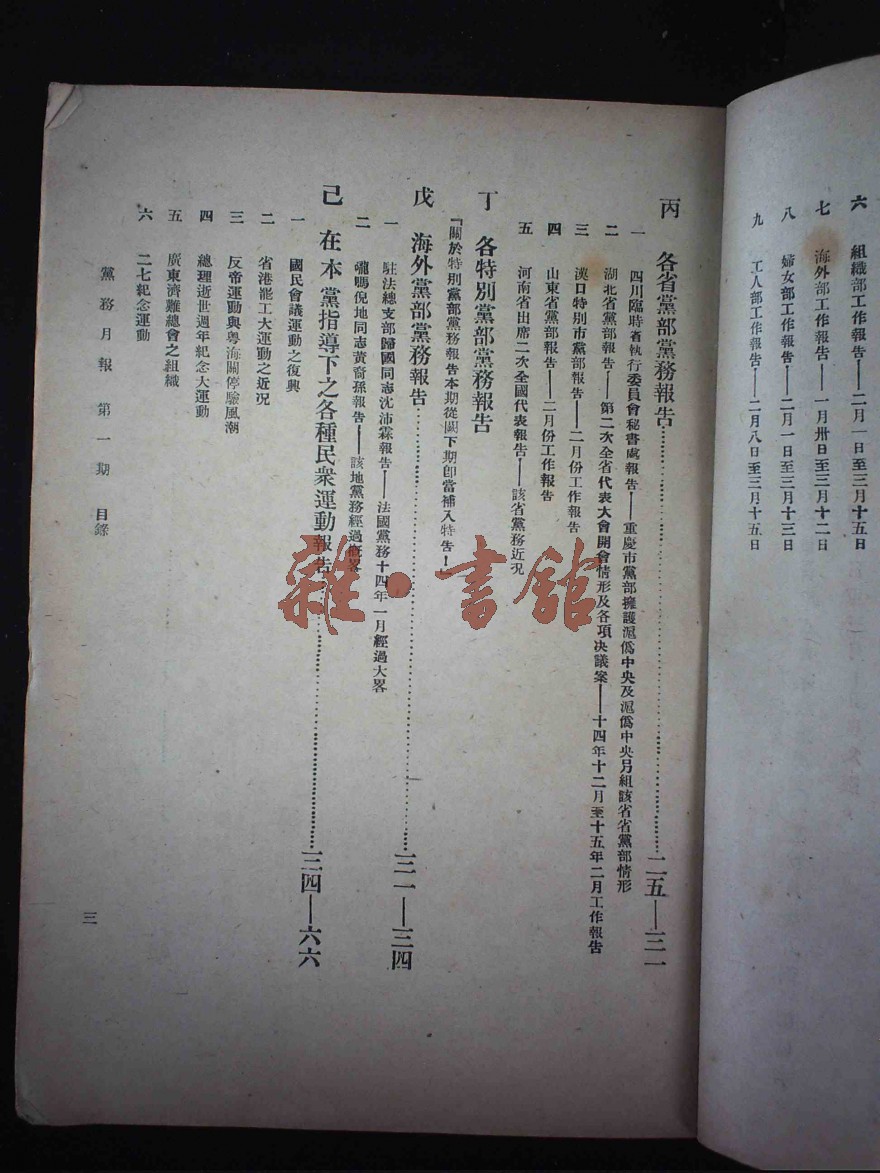 六　組織部工作報告——二月一日至三月十五日
七　海外部工作報告——一月卅日至三月十二日
八　婦女部工作報告——二月一日至三月十三日
九　工人部工作報告——二月八日至三月十五日
丙　各省黨部黨務報告…………二五—三一
一　四川臨時省執行委員會秘書處報告——重慶市黨部擁護滬僞中央及滬僞中央另組該省省黨部情形
二　湖北省黨部報告——第二次全省代表大會開會情形及各項决議案——十四年十二月至十五年二月工作報告
三　漢口特別市黨部報告——二月份工作報告
四　山東省黨部報告——二月份工作報告
五　河南省出席二次全國代表報告——該省黨務近况
丁　各特別黨部黨務報告
「關於特別黨部黨務報告本期從闕下期卽當補入特告」
戊　海外黨部黨務報告…………三一—三四
一　駐法總支部歸國同志沈沛霖報告——法國黨務十四年一月經過大畧
二　囇嗎倪地同志黃裔孫報告——該地黨務經過概畧
己　在本黨指導下之各種民衆運動報告…………三四—六六
一　國民會議運動之復興
二　省港罷工大運動之近况
三　反帝運動與粤海關停驗風潮
四　總理逝世週年紀念大運動
五　廣東濟難總會之組織
六　二七紀念運動
黨務月報　第一期　目錄
三
雜·書館